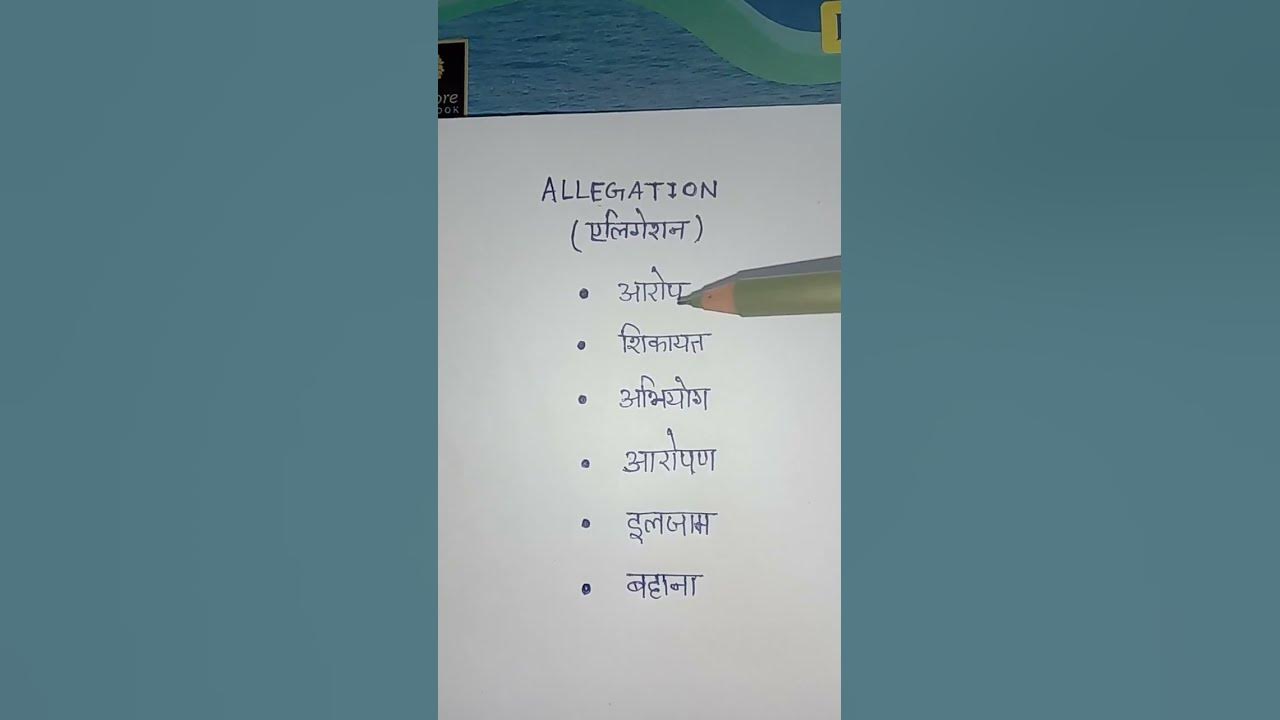 ore
OOK
ALLEGATION
(एलिगेशन)
• आरोप
• शिकायत
• अभियोग
• आरोपण
• इलजाम
• बहाना